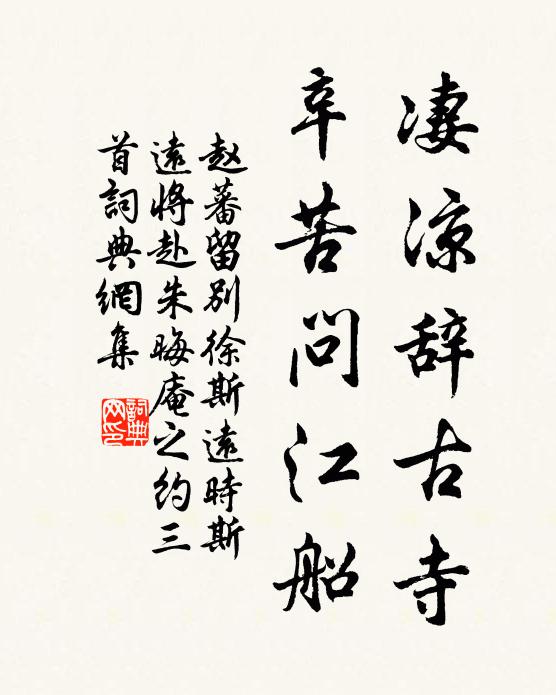 凄凉辞古寺
辛苦问江船
赵蕃留别徐斯遠時斯
遠將赴朱晦庵之约三
首詞典網集
詞典网印